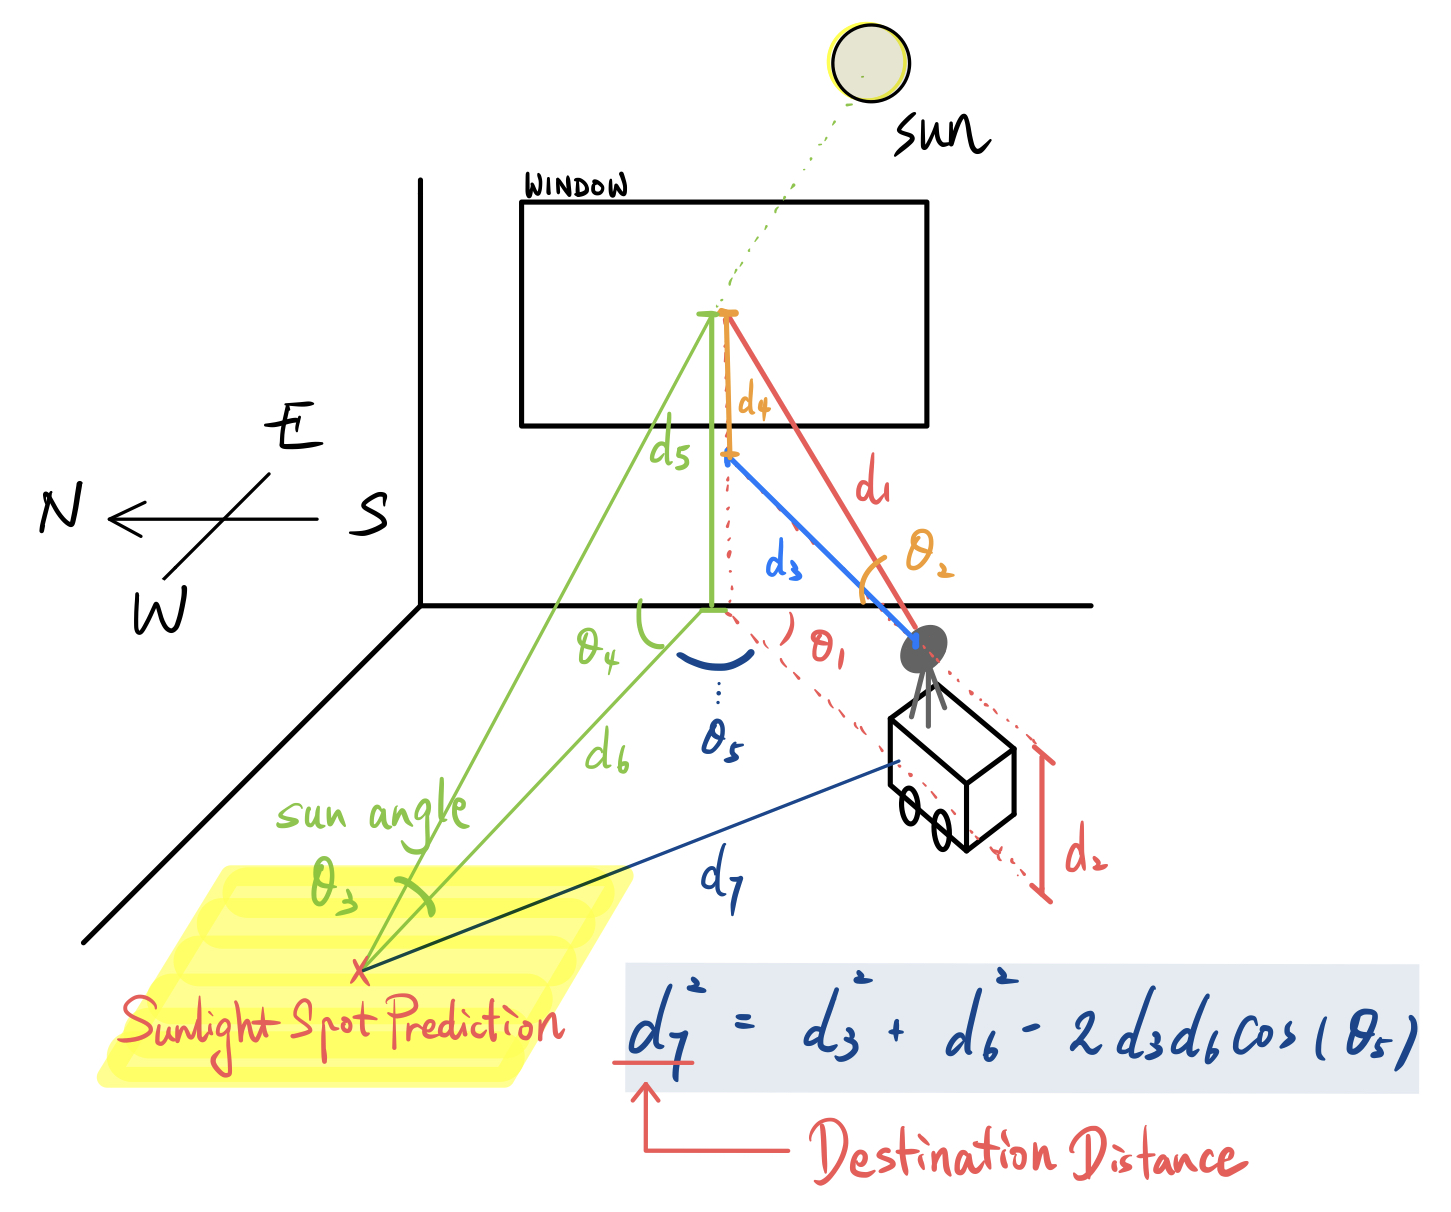 sun
WINDOW
d4
d5
E
d1
N
S
θ2
d3
W
θ4
θ1
θ5
d6
sun angle
θ3
d2
d7
Sunlight Spot Prediction
d7² = d3² + d6² - 2d3d6 cos(θ5)
Destination Distance